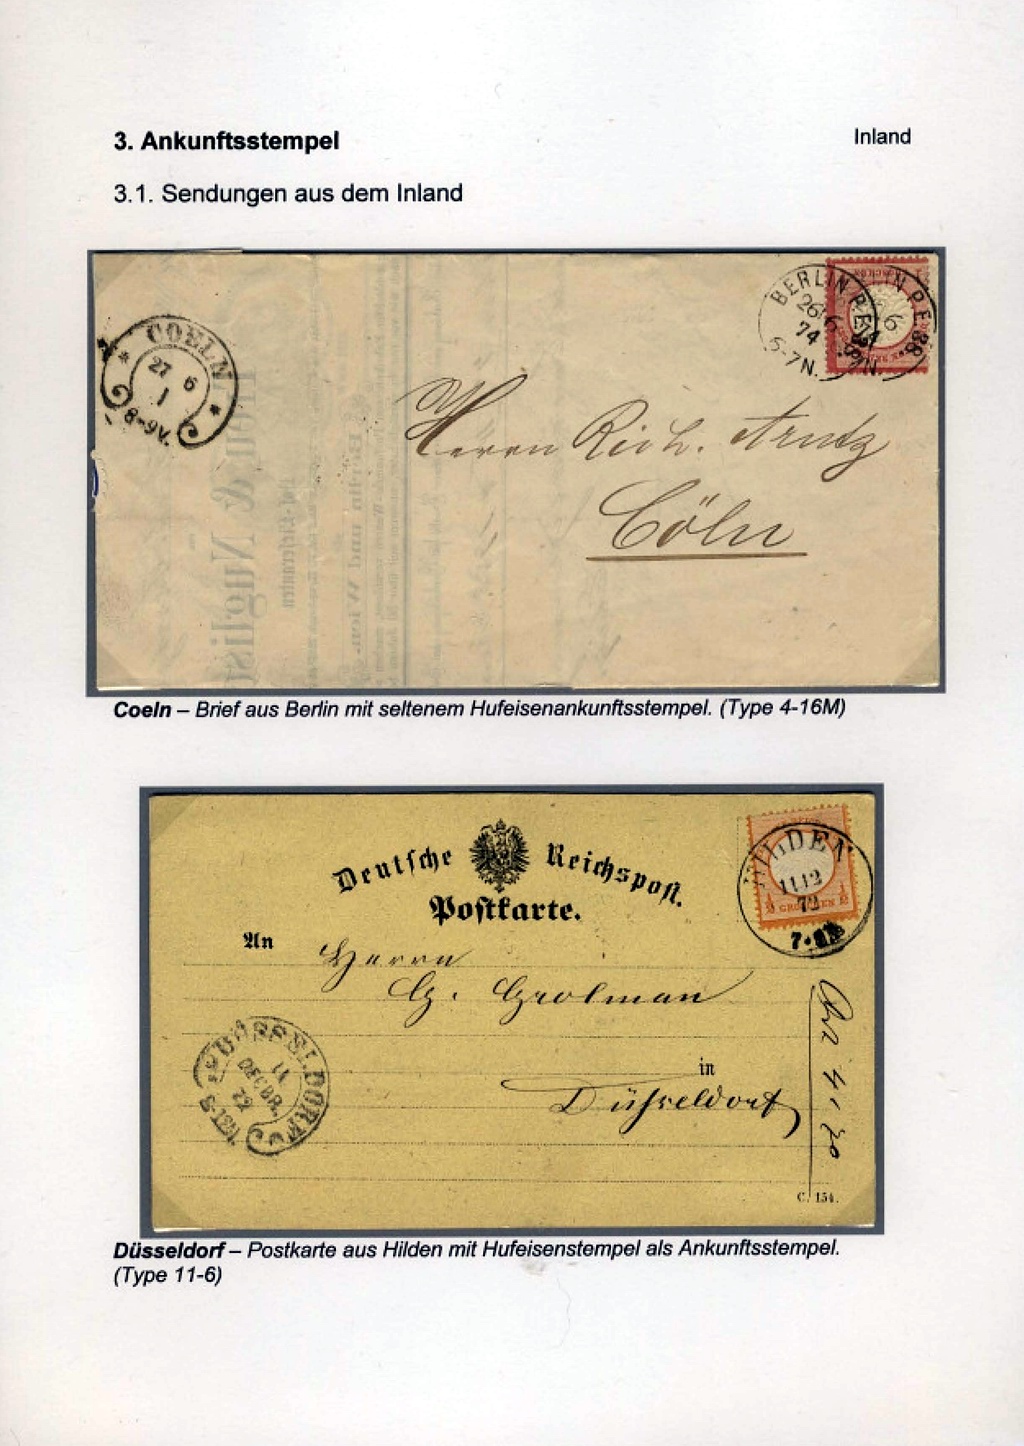 3. Ankunftsstempel
Inland
3.1. Sendungen aus dem Inland
COELN
27 6
1
8-9V.
BERLIN P.E.
26 6
74
6-7N.
N P.E. 38.
6
Herrn Rich. Arntz
Cöln
Berlin und Wien
Hof-Lieferanten
Coeln – Brief aus Berlin mit seltenem Hufeisenankunftsstempel. (Type 4-16M)
Deutsche Reichspost.
Postkarte.
HILDEN
11 12
72
GROSCHEN
An
Herrn
G. Grolman
in
Düsseldorf
DÜSSELDORF
11
DECBR.
72
C. 154.
Düsseldorf – Postkarte aus Hilden mit Hufeisenstempel als Ankunftsstempel.
(Type 11-6)